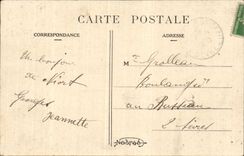 CARTE POSTALE
CORRESPONDANCE
ADRESSE
Un bonjour
de Niort
Georges
Jeannette
Mr Grolleau
Boulanger
au
2 Sèvres